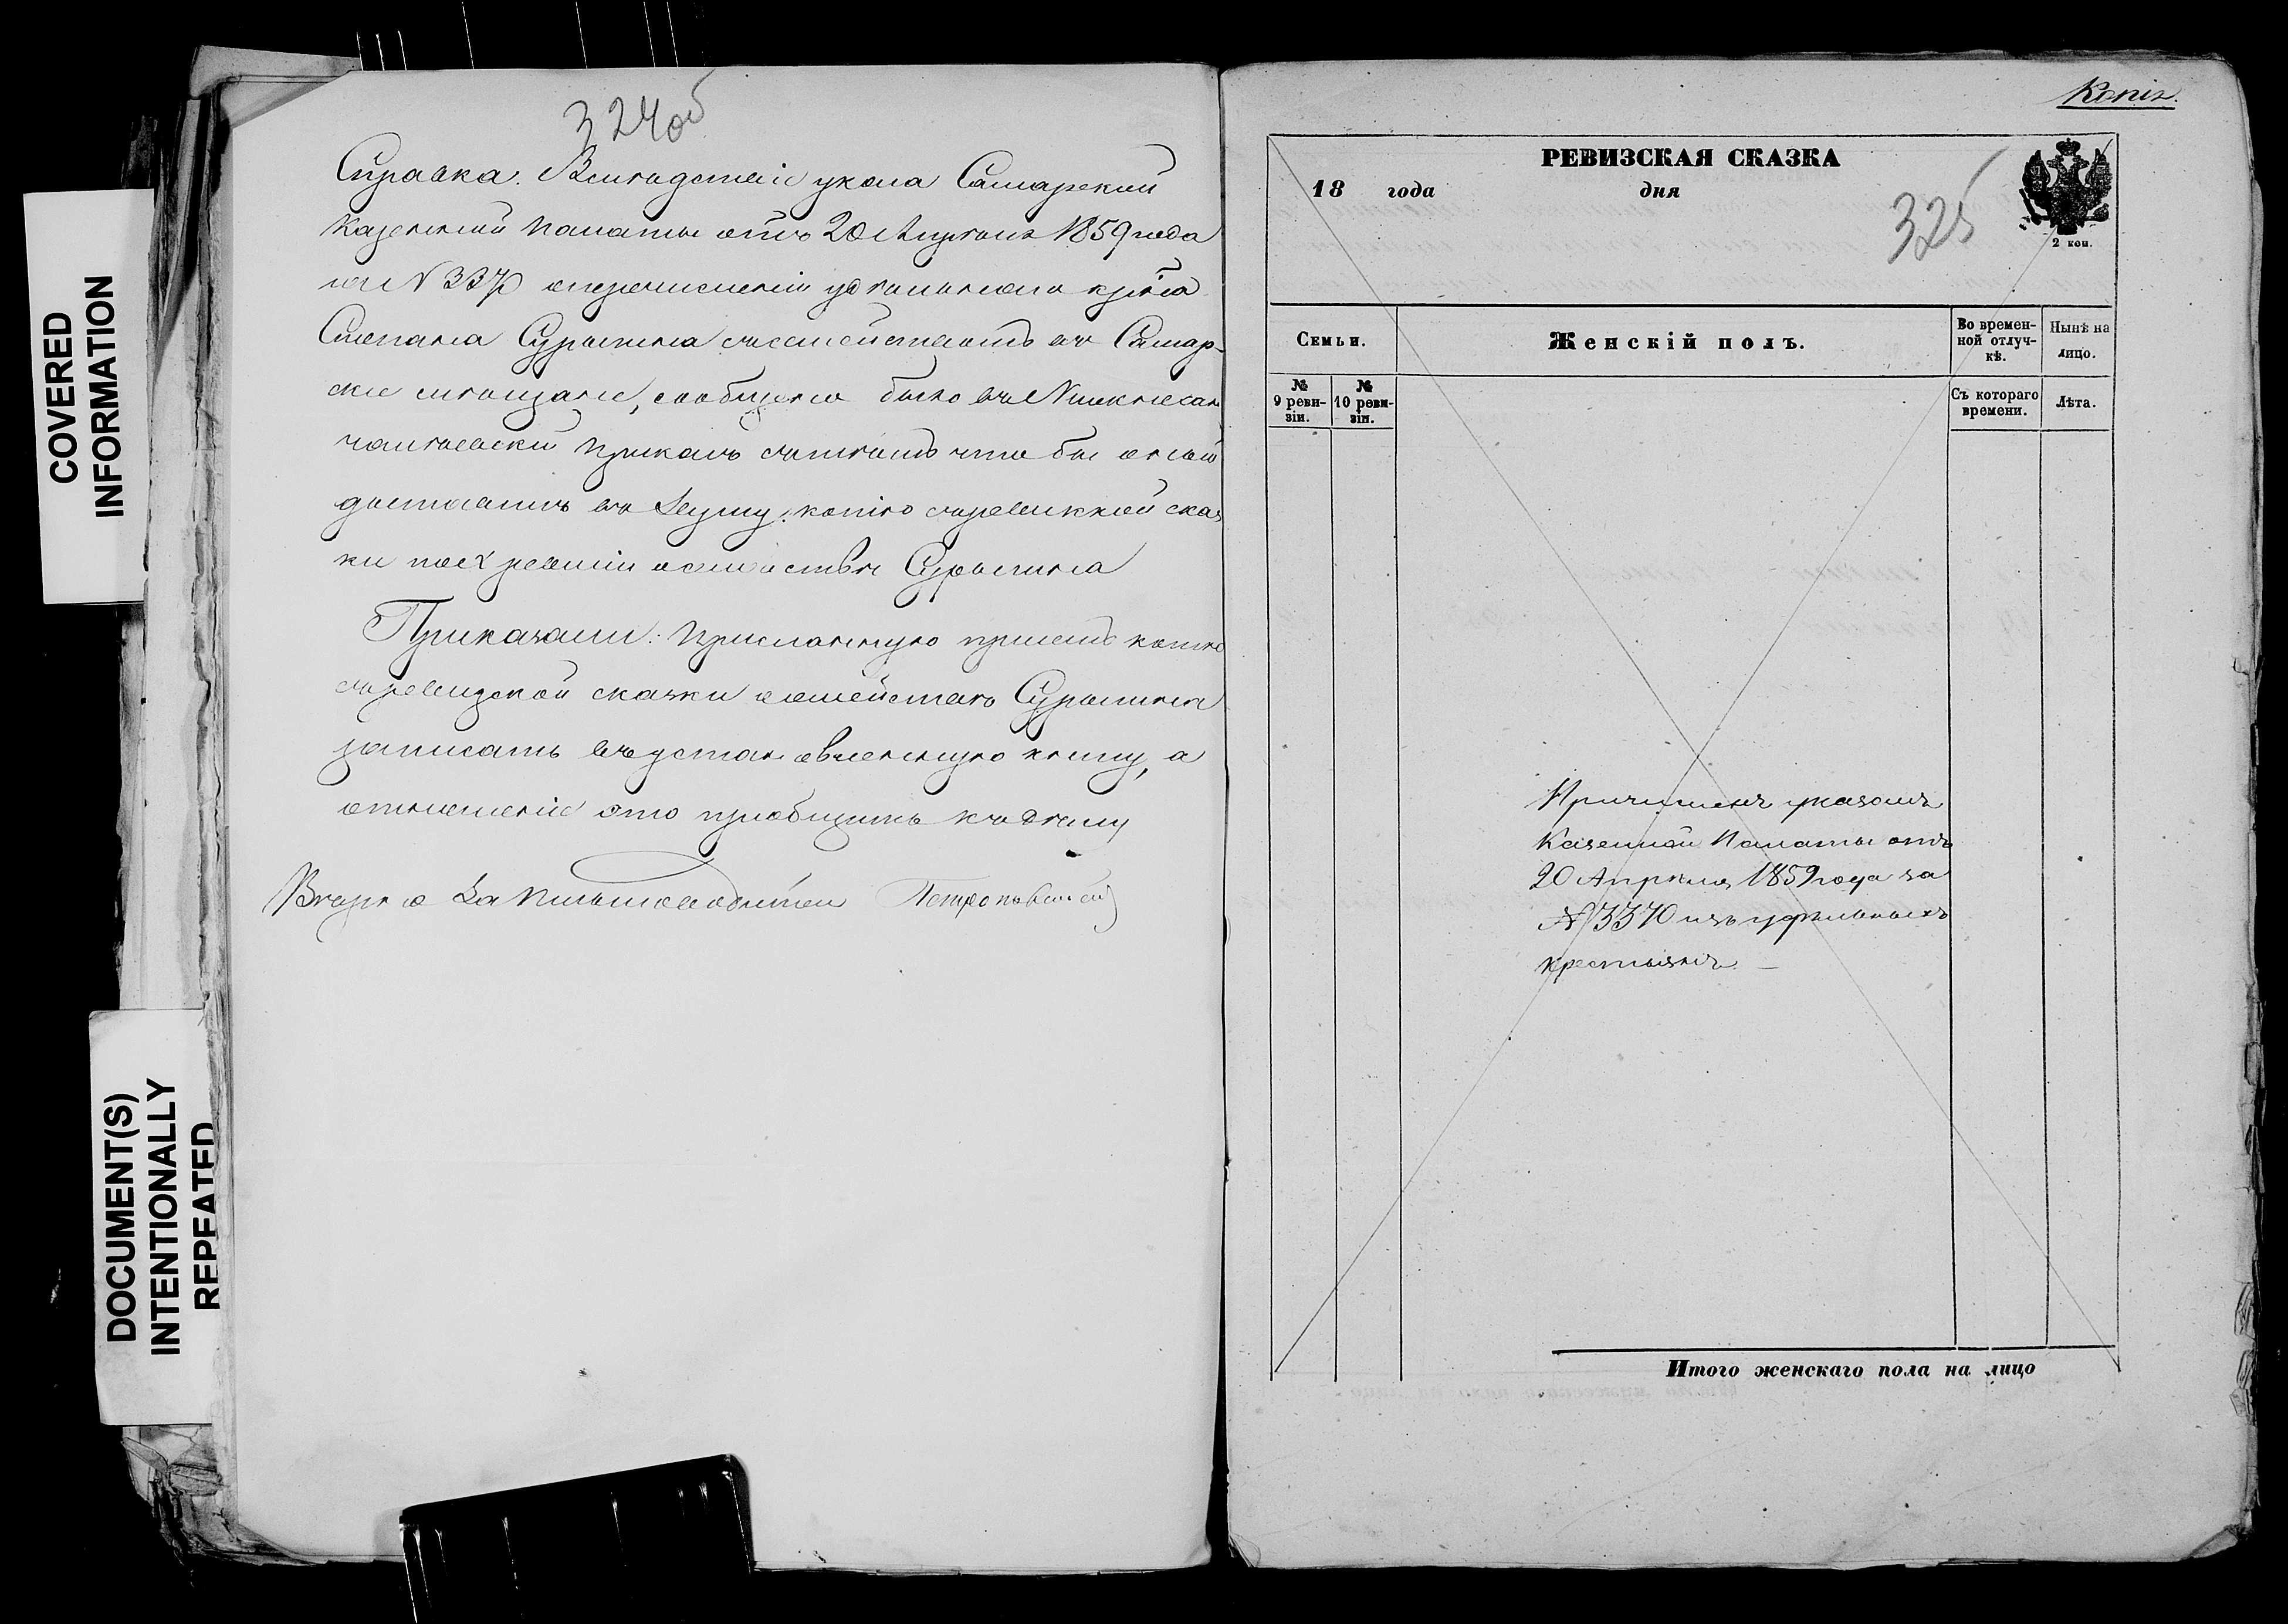 COVERED
INFORMATION
DOCUMENT(S)
INTENTIONALLY
REPEATED
324об
Справка. Вследствіе указа Самарской
Казенной Палаты отъ 20 Апреля 1859 года
за N 3370 о перечисленіи удельнаго кр-на
Степана Сурыгина съ семействомъ въ Самар-
ские мещане, сообщено было въ
приказъ съ темъ что бы оной
доставилъ въ Думу копію съ ревизкой сказ
ки по Х ревизіи о семействе Сурыгина
Приказали: Присланную при семъ копію
съ ревизской сказки о семействе Сурыгина
записать въ установленную книгу, а
отношеніе это пріобщить къ делу
Верно За Письмоводителя
Копія.
РЕВИЗСКАЯ СКАЗКА
18 года дня
325
2 коп.
Семьи.
Женскій полъ.
Во времен-
ной отлуч-
кѣ.
Нынѣ на
лицо.
№
9 реви-
зіи.
№
10 реви-
зіи.
Съ котораго
времени.
Лѣта.
Причисленъ указомъ
Казенной Палаты отъ
20 Апреля 1859 года за
№ 3370 изъ удельныхъ
крестьянъ —
Итого женскаго пола на лицо